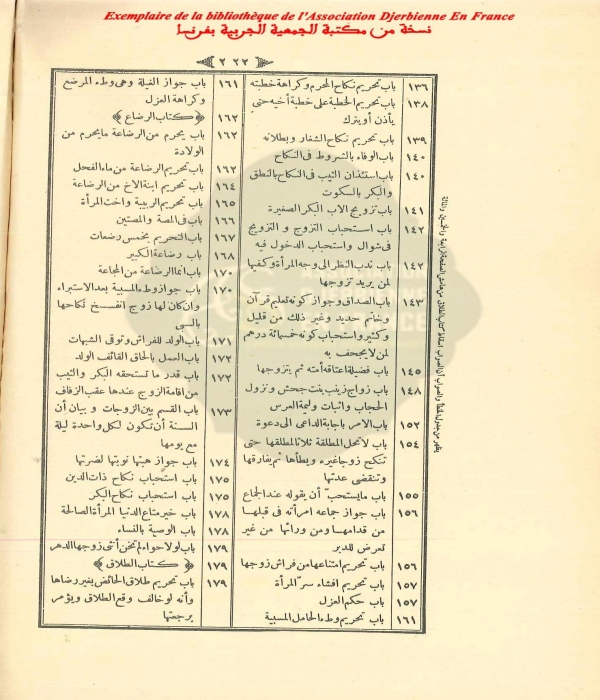 Exemplaire de la bibliothèque de l'Association Djerbienne En France
نسخة من مكتبة الجمعية الجربية بفرنسا
١٣٦ باب تحريم نكاح المحرم وكراهة خطبته
١٣٨ باب تحريم الخطبة على خطبة أخيه حتى
يأذن أو يترك
١٣٩ باب تحريم نكاح الشغار وبطلانه
١٤٠ باب الوفاء بالشروط فى النكاح
١٤٠ باب استئذان الثيب فى النكاح بالنطق
والبكر بالسكوت
١٤١ باب تزويج الاب البكر الصغيرة
١٤٢ باب استحباب التزوج و التزويج
فى شوال واستحباب الدخول فيه
١٤٢ باب ندب النظر الى وجه المرأة وكفيها
لمن يريد تزوجها
١٤٣ باب الصداق وجواز كونه تعليم قرآن
وخاتم حديد وغير ذلك من قليل
وكثير واستحباب كونه خمسمائة درهم
لمن لا يجحف به
١٤٥ باب فضيلة اعتاقه أمته ثم يتزوجها
١٤٨ باب زواج زينب بنت جحش ونزول
الحجاب واثبات وليمة العرس
١٥٢ باب الامر باجابة الداعى الى دعوة
١٥٤ باب لا تحل المطلقة ثلاثا لمطلقها حتى
تنكح زوجا غيره ويطأها ثم يفارقها
وتنقضى عدتها
١٥٥ باب ما يستحبّ أن يقوله عند الجماع
١٥٦ باب جواز جماعه امرأته فى قبلها
من قدامها ومن ورائها من غير
تعرض للدبر
١٥٦ باب تحريم امتناعها من فراش زوجها
١٥٧ باب تحريم افشاء سرّ المرأة
١٥٧ باب حكم العزل
١٦١ باب تحريم وطء الحامل المسبية
١٦١ باب جواز الغيلة وهى وطء المرضع
وكراهة العزل
١٦٢ ﴿ كتاب الرضاع ﴾
١٦٢ باب يحرم من الرضاعة ما يحرم من
الولادة
١٦٢ باب تحريم الرضاعة من ماء الفحل
١٦٤ باب تحريم ابنة الاخ من الرضاعة
١٦٥ باب تحريم الربيبة واخت المرأة
١٦٦ باب فى المصة والمصتين
١٦٧ باب التحريم بخمس رضعات
١٦٨ باب رضاعة الكبير
١٧٠ باب انما الرضاعة من المجاعة
١٧٠ باب جواز وطء المسبية بعد الاستبراء
وان كان لها زوج انفسخ نكاحها
بالسبى
١٧١ باب الولد للفراش وتوقى الشبهات
١٧٢ باب العمل بالحاق القائف الولد
١٧٢ باب قدر ما تستحقه البكر والثيب
من اقامة الزوج عندها عقب الزفاف
١٧٣ باب القسم بين الزوجات و بيان أن
السنة أن تكون لكل واحدة ليلة
مع يومها
١٧٤ باب جواز هبتها نوبتها لضرتها
١٧٥ باب استحباب نكاح ذات الدين
١٧٥ باب استحباب نكاح البكر
١٧٨ باب خير متاع الدنيا المرأة الصالحة
١٧٨ باب الوصية بالنساء
١٧٩ باب لولا حواء لم تخن أنثى زوجها الدهر
١٧٩ ﴿ كتاب الطلاق ﴾
١٧٩ باب تحريم طلاق الحائض بغير رضاها
وأنه لو خالف وقع الطلاق ويؤمر
برجعتها